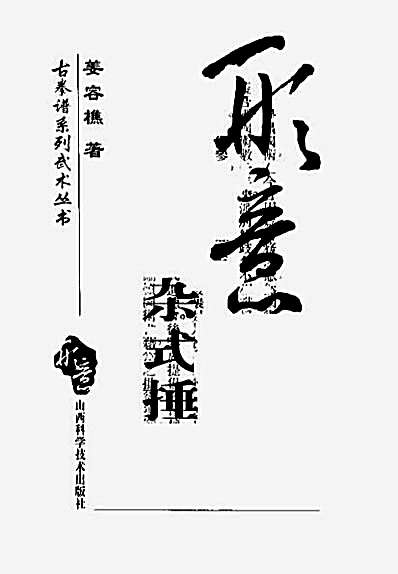 形意
杂式捶
姜容樵 著
古拳谱系列武术丛书
形意
山西科学技术出版社